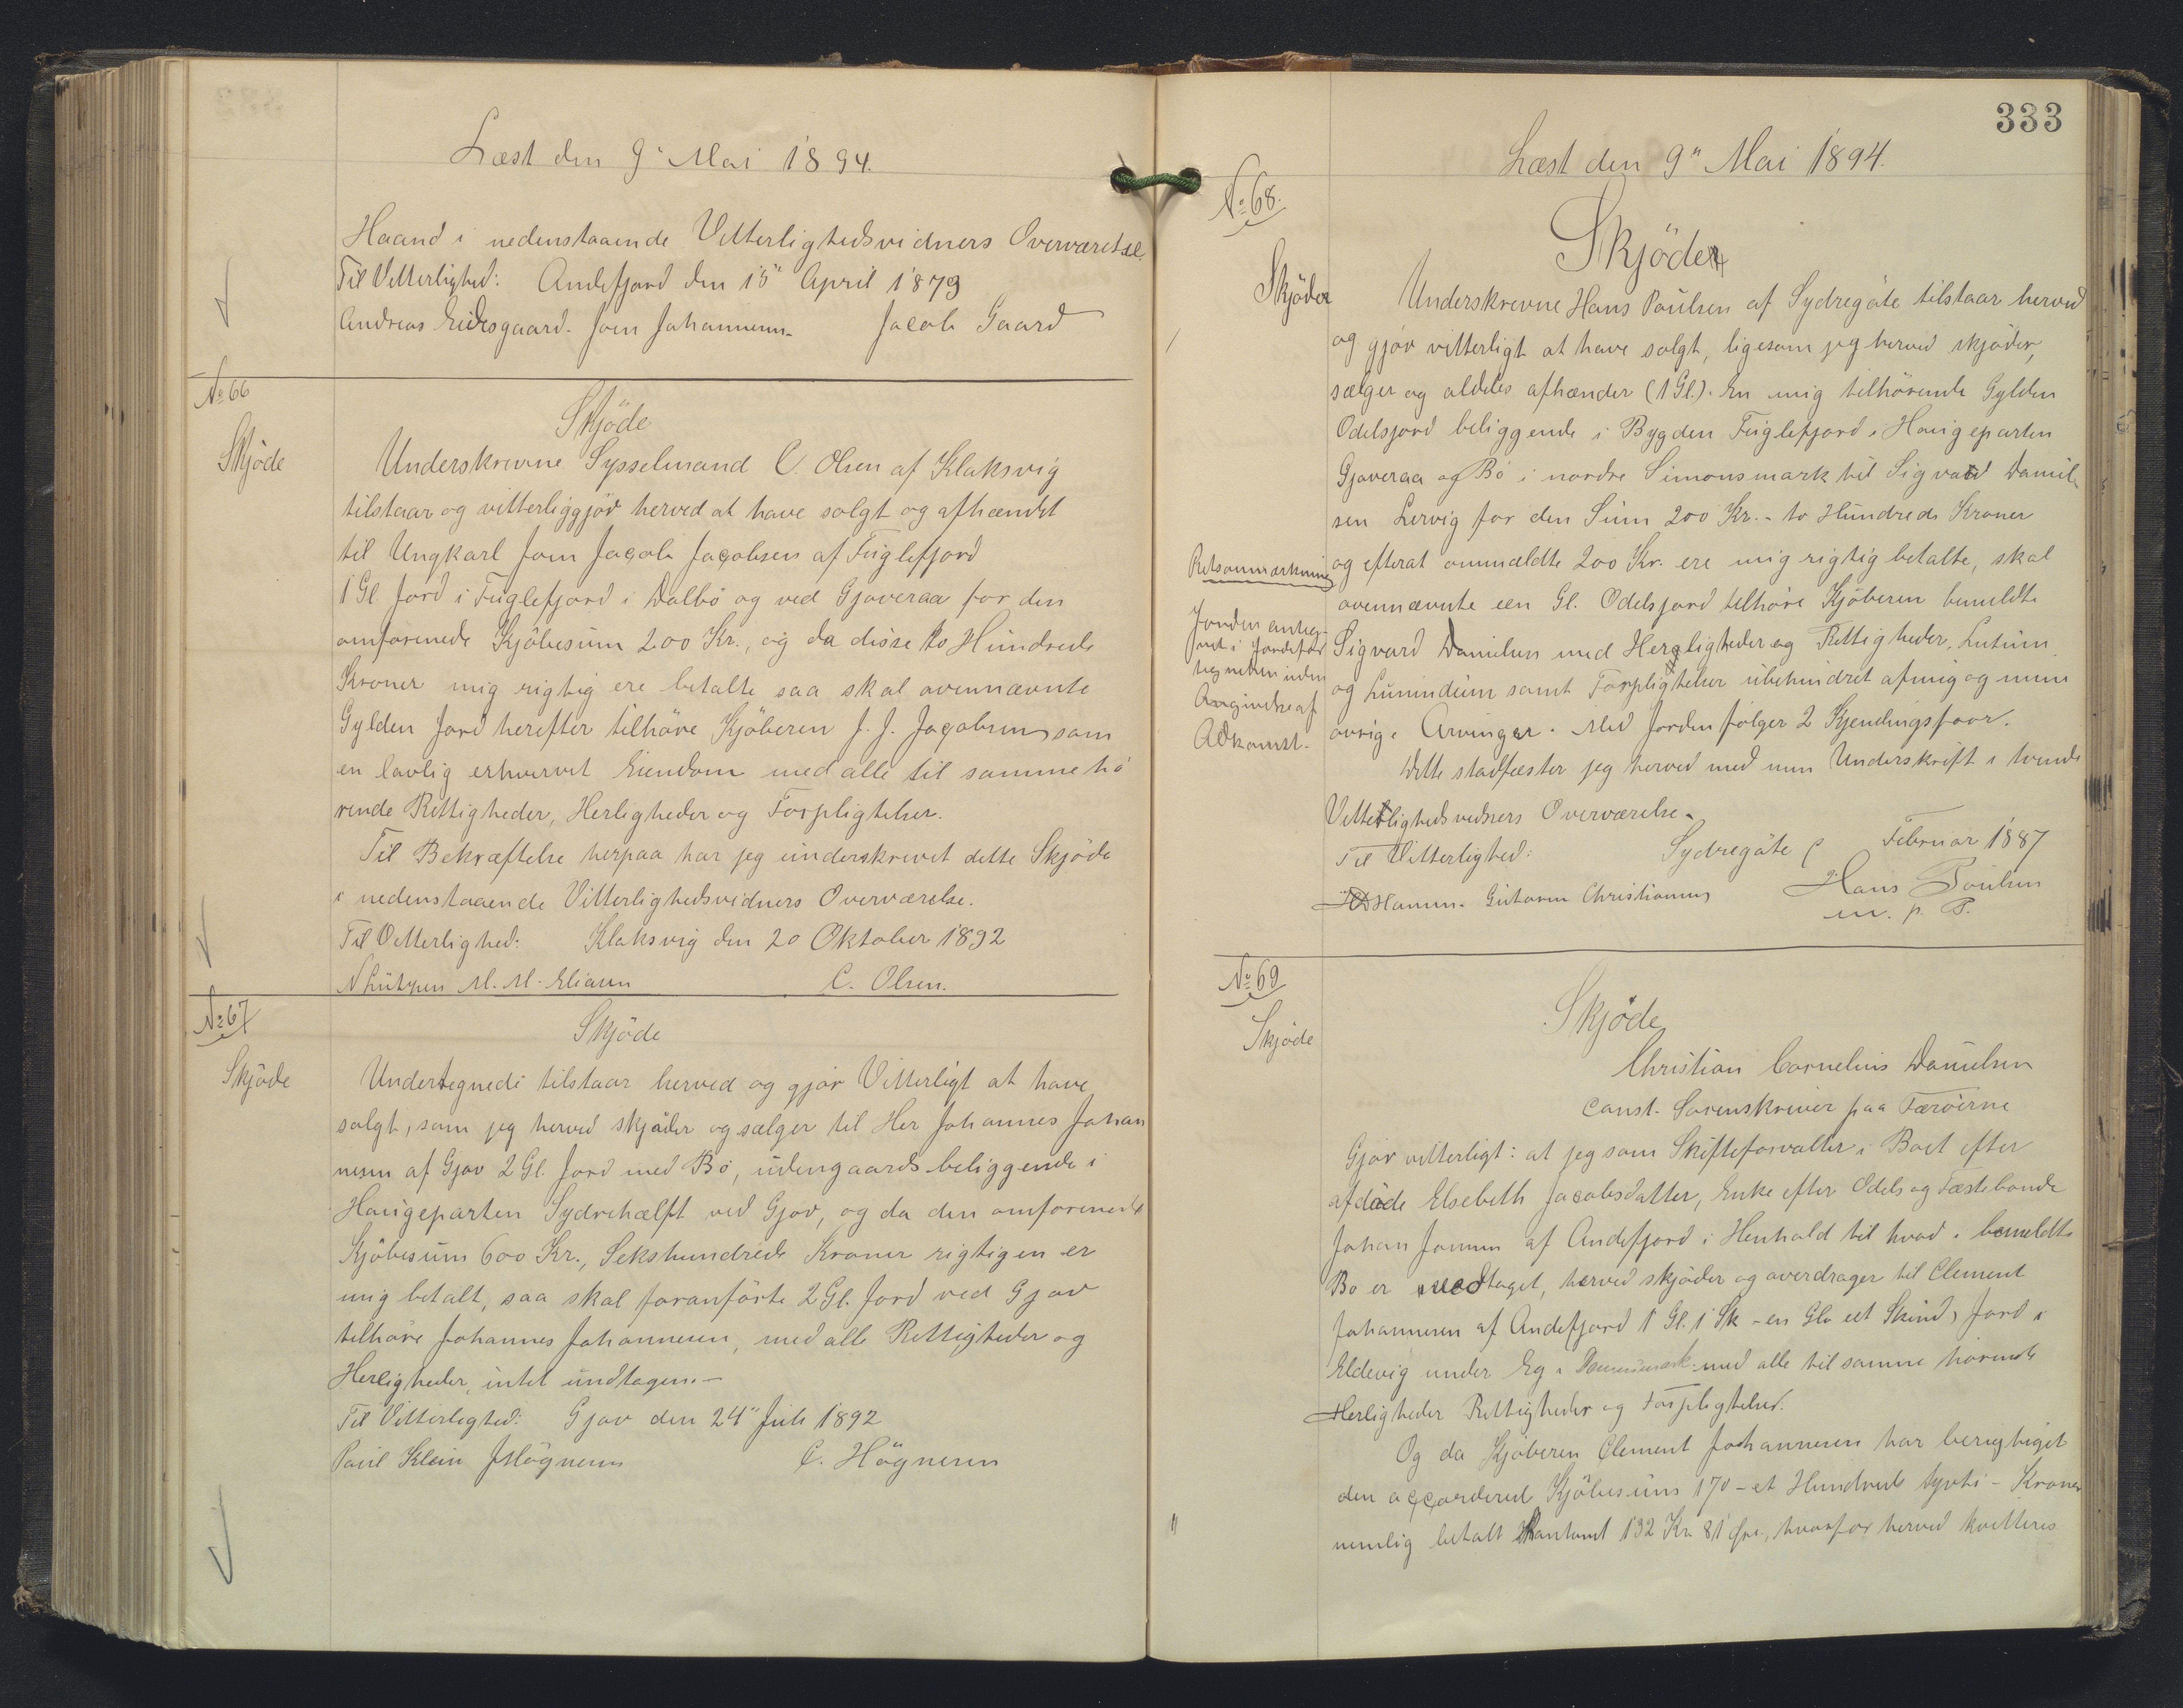 Læst den 9" Mai 1894.
Haand i nedenstaaende Vitterlighedsvidners Overværelse.
Til Vitterlighed: Andefjord den 15" April 1879
Andreas Eidesgaard. Joen Johannesen. Jacob Gaard
No 66
Skjöde
Skjöde
Underskrevne Sysselmand C. Olsen af Klaksvig
tilstaar og vitterliggjör herved at have solgt og afhændet
til Ungkarl Joen Jacob Jacobsen af Fuglefjord
1 Gl. Jord i Fuglefjord i Dalbö og ved Gjoveraa for den
omforenede Kjöbesum 200 Kr., og da disse to Hundrede
Kroner mig rigtig ere betalte saa skal ovennævnte
Gylden Jord herefter tilhöre Kjöberen J. J. Jacobsen som
en lovlig erhvervet Eiendom med alle til samme hö
rende Rettigheder, Herligheder og Forpligtelser.
Til Bekræftelse herpaa har jeg underskrevet dette Skjöde
i nedenstaaende Vitterlighedsvidners Overværelse.
Til Vitterlighed: Klaksvig den 20 Oktober 1892
M. M. Eliasen C. Olsen.
No 67
Skjöde
Skjöde
Undertegnede tilstaar herved og gjör Vitterligt at have
solgt, som jeg herved skjöder og sælger til Her Johannes Johan
nesen af Gjov 2 Gl. Jord med Bö, udengaards beliggende i
Haugeparten Sydrehælft ved Gjov, og da den omforenede
Kjöbesum 600 Kr., Sekshundrede Kroner rigtigen er
mig betalt, saa skal foranförte 2 Gl. Jord ved Gjov
tilhöre Johannes Johannesen, med alle Rettigheder og
Herligheder, intet undtagen.-
Til Vitterlighed: Gjov den 24" Juli 1892
Paul Klein JHögnesen C. Högnesen
333
Læst den 9" Mai 1894.
No 68.
Skjöder
Skjöder
Underskrevne Hans Poulsen af Sydregöte tilstaar herved
og gjör vitterligt at have solgt, ligesom jeg herved skjöder,
sælger og aldeles afhænder (1 Gl.). En mig tilhörende Gylden
Odelsjord beliggende i Bygden Fuglefjord i Haugeparten
Gjoveraa og Bö i nordre Simonsmark til Sigvard Daniel
sen Lervig for den Sum 200 Kr. - to Hundrede Kroner
og efterat ommældte 200 Kr. ere mig rigtig betalte, skal
ovennævnte een Gl. Odelsjord tilhöre Kjöberen bemeldte
Sigvard Danielsen med Herligheder og Rettigheder, Lutum
og Lunindum samt Forpligtelser ubehindret af mig og mine
övrige Arvinger. Med Jorden fölger 2 Kjendingsfaar.
Dette stadfæster jeg herved med min Underskrift i tvende
Vitterlighedsvidners Overværelse.
Til Vitterlighed: Sydregöte Februar 1887
Hansen. Gutorm Christiansen Hans Poulsen
m. p. P.
Retsanmærkning
Jorden anteg-
net i Jordefor
tegnelsen uden
Angivelse af
Adkomst.
No 69
Skjöde
Skjöde
Christian Cornelius Danielsen
const. Sorenskriver paa Færöerne
Gjör vitterligt: at jeg som Skifteforvalter i Boet efter
afdöde Elsebeth Jacobsdatter, Enke efter Odels og Fæstebonde
Johan Joensen af Andefjord i Henhold til hvad i bemeldte
Bo er vedtaget, herved skjöder og overdrager til Clement
Johannesen af Andefjord 1 Gl. 1 Sk - en Gl. eet Skind, Jord i
Eldevig under Eg i med alle til samme hörende
Herligheder Rettigheder og Forpligtelser.
Og da Kjöberen Clement Johannesen har berigtiget
den accorderede Kjöbesum 170 - et Hundrede syvti - Kroner
nemlig betalt kontant 132 Kr. 81 Öre, hvorfor herved kvitteres